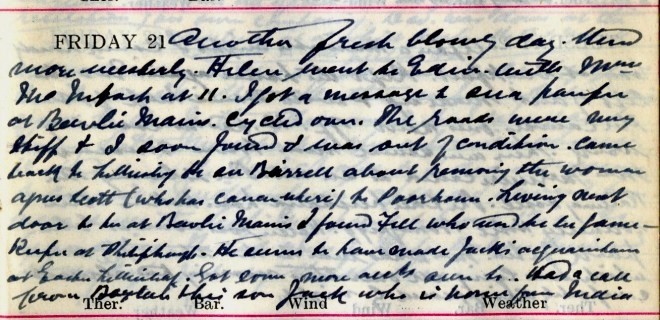 FRIDAY 21 Another fresh blowy day. Wind
more westerly. Helen went to Edin. with Mrs
at 11. I got a message to see a pauper
at Mains. Cycled over. The roads were very
stiff & I soon found I was out of condition. Came
back to to see Birrell about removing the woman
Scott (who has cancer uteri) to Poorhouse. Living next
door to her at Mains I found Fell who used to be game-
keeper at Philiphaugh. He seems to have made Jack's acquaintance
at Easter . Got some more accts sent . Had a call
from his son Jack who is home from India
Ther. Bar. Wind Weather